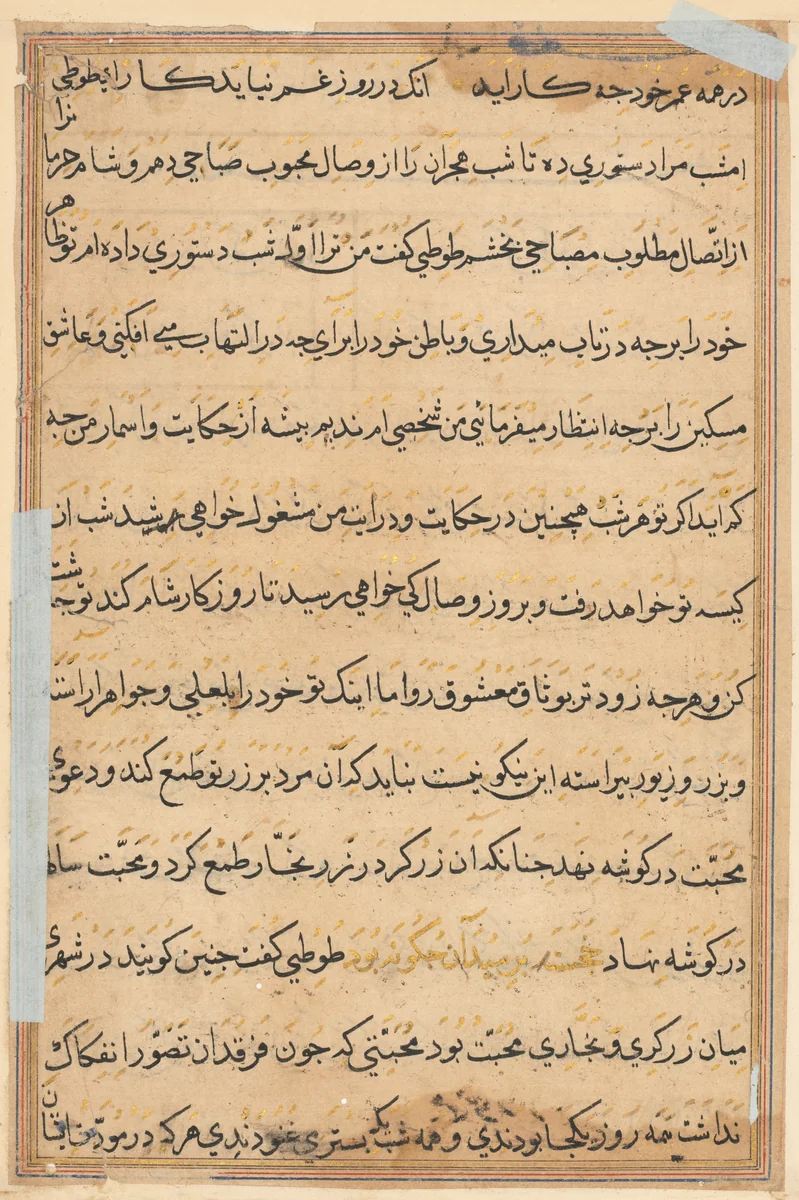 در همه عمر خود جه كار ايد انك در روز غم نيايد كار اي طوطي
امشب مرا دستوري ده تا شب هجران را از وصال محبوب صباحي دهم و شام حرمانرا
از اتّصال مطلوب مصباحي بخشم طوطي كفت من ترا اوّل شب دستوري داده ام تو ظاهر
خود را بر جه در تاب ميداري و باطن خود را براي جه در التهاب مي افكني و عاشق
مسكين را بر جه انتظار ميفرمائي من شخصي ام نديم بيشه از حكايت و اسمار من جه
كم آيد اكر تو هر شب همچنين در حكايت و درايت من مشغول خواهي شب از
كيسه تو خواهد رفت و بروز وصال كي خواهي رسيد تا روز كار شام كند تو جاشت
كن و هر جه زود تر بوثاق معشوق رو اما اينك تو خود را بلعلي و جواهر اراسته
و بزر و زيور بيراسته اين نيكو نيست نبايد كه آن مرد بر زر تو طمع كند و دعوي
محبّت در كوشه نهد جنانكه ان زركر در زر نجّار طمع كرد و محبّت ساله
در كوشه نهاد خجسته برسيد آن جكونه بود طوطي كفت جنين كويند در شهري
ميان زركري و نجاري محبّت بود محبّتي كه جون فرقدان تصوّر انفكاك
نداشت همه روز يكجا بودندي و همه شب بيك بستري غنودندي هر كه در مودّت